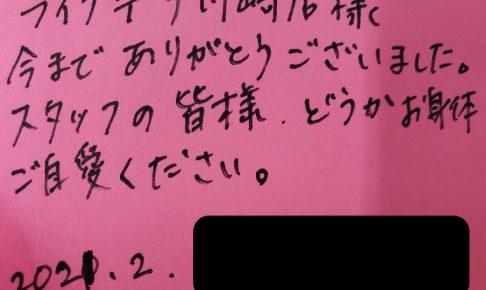 川崎店様
今までありがとうございました。
スタッフの皆様、どうかお身体
ご自愛ください。
2021.2.